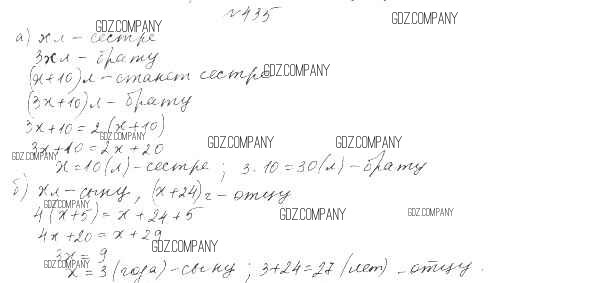 №435
GDZ.COMPANY
GDZ.COMPANY
а) x л – сестре
3x л – брату
GDZ.COMPANY
(x+10) л – станет сестре
(3x+10) л – брату
3x+10 = 2(x+10)
GDZ.COMPANY
GDZ.COMPANY
GDZ.COMPANY
3x+10 = 2x+20
GDZ.COMPANY
x = 10 (л) – сестре ; 3·10 = 30 (л) – брату
б) x л – сыну, (x+24) г – отцу
GDZ.COMPANY
GDZ.COMPANY
GDZ.COMPANY
4(x+5) = x+24+5
4x+20 = x+29
GDZ.COMPANY
3x = 9
GDZ.COMPANY
x = 3 (года) – сыну ; 3+24=27 (лет) – отцу.